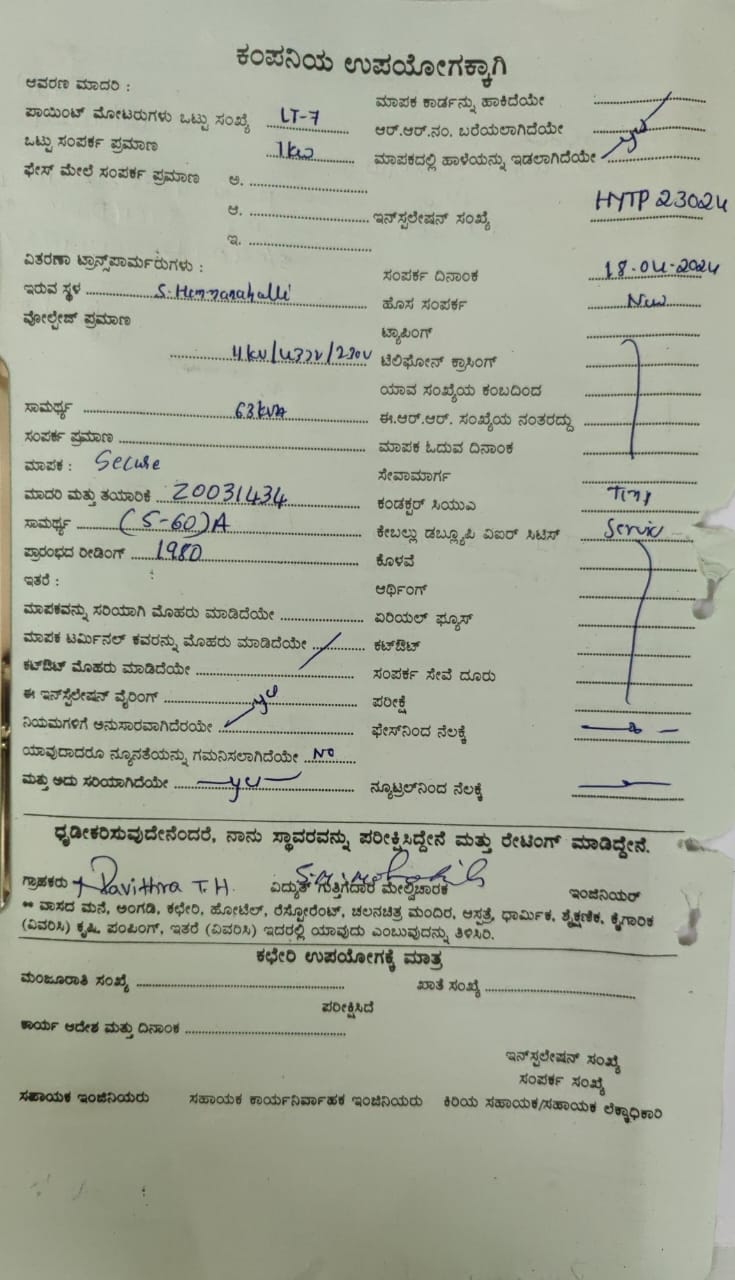 ಕಂಪನಿಯ ಉಪಯೋಗಕ್ಕಾಗಿ
ಆವರಣ ಮಾದರಿ :
ಮಾಪಕ ಕಾರ್ಡನ್ನು ಹಾಕಿದೆಯೇ
ಪಾಯಿಂಟ್ ಮೋಟರುಗಳು ಒಟ್ಟು ಸಂಖ್ಯೆ LT-7
ಆರ್.ಆರ್.ನಂ. ಬರೆಯಲಾಗಿದೆಯೇ
ಒಟ್ಟು ಸಂಪರ್ಕ ಪ್ರಮಾಣ 1kw
ಮಾಪಕದಲ್ಲಿ ಹಾಳೆಯನ್ನು ಇಡಲಾಗಿದೆಯೇ
ಫೇಸ್ ಮೇಲೆ ಸಂಪರ್ಕ ಪ್ರಮಾಣ ಅ.
ಆ. ಇನ್‌ಸ್ಪಲೇಷನ್ ಸಂಖ್ಯೆ HYTP 23024
ಇ.
ವಿತರಣಾ ಟ್ರಾನ್ಸ್‌ಪಾರ್ಮರುಗಳು :
ಸಂಪರ್ಕ ದಿನಾಂಕ 18-04-2024
ಇರುವ ಸ್ಥಳ S. Hemmanahalli
ಹೊಸ ಸಂಪರ್ಕ New
ವೋಲ್ಟೇಜ್ ಪ್ರಮಾಣ
ಟ್ಯಾಪಿಂಗ್
11kv/433v/230v ಟೆಲಿಫೋನ್ ಕ್ರಾಸಿಂಗ್
ಯಾವ ಸಂಖ್ಯೆಯ ಕಂಬದಿಂದ
ಸಾಮರ್ಥ್ಯ 63kva ಈ.ಆರ್.ಆರ್. ಸಂಖ್ಯೆಯ ನಂತರದ್ದು
ಸಂಪರ್ಕ ಪ್ರಮಾಣ ಮಾಪಕ ಓದುವ ದಿನಾಂಕ
ಮಾಪಕ : Secure ಸೇವಾಮಾರ್ಗ
ಮಾದರಿ ಮತ್ತು ತಯಾರಿಕೆ 20031434 ಕಂಡಕ್ಟರ್ ಸಿಯುಎ
ಸಾಮರ್ಥ್ಯ (5-60)A ಕೇಬಲ್ಲು ಡಬ್ಲ್ಯೂಪಿ ವಿಐರ್ ಸಿಟಿಸ್
ಪ್ರಾರಂಭದ ರೀಡಿಂಗ್ 1980 ಕೊಳವೆ
ಇತರೆ : ಆರ್ಥಿಂಗ್
ಮಾಪಕವನ್ನು ಸರಿಯಾಗಿ ಮೊಹರು ಮಾಡಿದೆಯೇ ಏರಿಯಲ್ ಫ್ಯೂಸ್
ಮಾಪಕ ಟರ್ಮಿನಲ್ ಕವರನ್ನು ಮೊಹರು ಮಾಡಿದೆಯೇ ಕಟ್‌ಔಟ್
ಕಟ್‌ಔಟ್ ಮೊಹರು ಮಾಡಿದೆಯೇ ಸಂಪರ್ಕ ಸೇವೆ ದೂರು
ಈ ಇನ್‌ಸ್ಪೆಲೇಷನ್ ವೈರಿಂಗ್ ಪರೀಕ್ಷೆ
ನಿಯಮಗಳಿಗೆ ಅನುಸಾರವಾಗಿದೆರಯೇ ಫೇಸ್‌ನಿಂದ ನೆಲಕ್ಕೆ
ಯಾವುದಾದರೂ ನ್ಯೂನತೆಯನ್ನು ಗಮನಿಸಲಾಗಿದೆಯೇ No
ಮತ್ತು ಅದು ಸರಿಯಾಗಿದೆಯೇ ನ್ಯೂಟ್ರಲ್‌ನಿಂದ ನೆಲಕ್ಕೆ
ಧೃಡೀಕರಿಸುವುದೇನೆಂದರೆ, ನಾನು ಸ್ಥಾವರವನ್ನು ಪರೀಕ್ಷಿಸಿದ್ದೇನೆ ಮತ್ತು ರೇಟಿಂಗ್ ಮಾಡಿದ್ದೇನೆ.
ಗ್ರಾಹಕರು Pavithra T.H. ವಿದ್ಯುತ್ ಗುತ್ತಿಗೆದಾರ ಮೇಲ್ವಿಚಾರಕ ಇಂಜಿನಿಯರ್
** ವಾಸದ ಮನೆ, ಅಂಗಡಿ, ಕಛೇರಿ, ಹೋಟೆಲ್, ರೆಸ್ಟೋರೆಂಟ್, ಚಲನಚಿತ್ರ ಮಂದಿರ, ಆಸ್ಪತ್ರೆ, ಧಾರ್ಮಿಕ, ಶೈಕ್ಷಣಿಕ, ಕೈಗಾರಿಕ
(ವಿವರಿಸಿ) ಕೃಷಿ, ಪಂಪಿಂಗ್, ಇತರೆ (ವಿವರಿಸಿ) ಇದರಲ್ಲಿ ಯಾವುದು ಎಂಬುವುದನ್ನು ತಿಳಿಸಿರಿ.
ಕಛೇರಿ ಉಪಯೋಗಕ್ಕೆ ಮಾತ್ರ
ಮಂಜೂರಾತಿ ಸಂಖ್ಯೆ ಖಾತೆ ಸಂಖ್ಯೆ
ಪರೀಕ್ಷಿಸಿದೆ
ಕಾರ್ಯ ಆದೇಶ ಮತ್ತು ದಿನಾಂಕ
ಇನ್‌ಸ್ಪಲೇಷನ್ ಸಂಖ್ಯೆ
ಸಂಪರ್ಕ ಸಂಖ್ಯೆ
ಸಹಾಯಕ ಇಂಜಿನಿಯರು ಸಹಾಯಕ ಕಾರ್ಯನಿರ್ವಾಹಕ ಇಂಜಿನಿಯರು ಕಿರಿಯ ಸಹಾಯಕ/ಸಹಾಯಕ ಲೆಕ್ಕಾಧಿಕಾರಿ